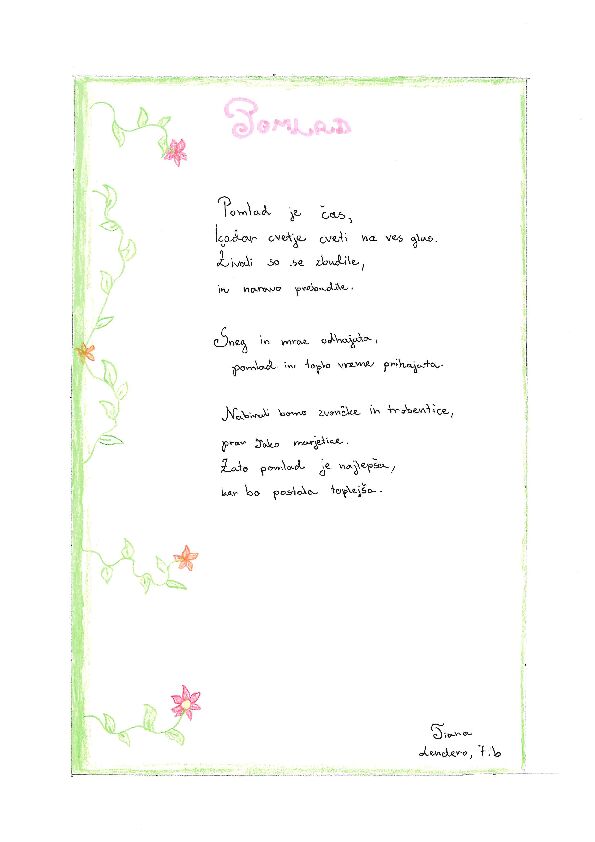 POMLAD
Pomlad je čas,
kadar cvetje cveti na ves glas.
Živali so se zbudile,
in naravo prebudile.
Sneg in mraz odhajata,
pomlad in toplo vreme prihajata.
Nabirali bomo zvončke in trobentice,
prav tako marjetice.
Zato pomlad je najlepša,
ker bo postala toplejša.
Tiana
Lendero, 7.b